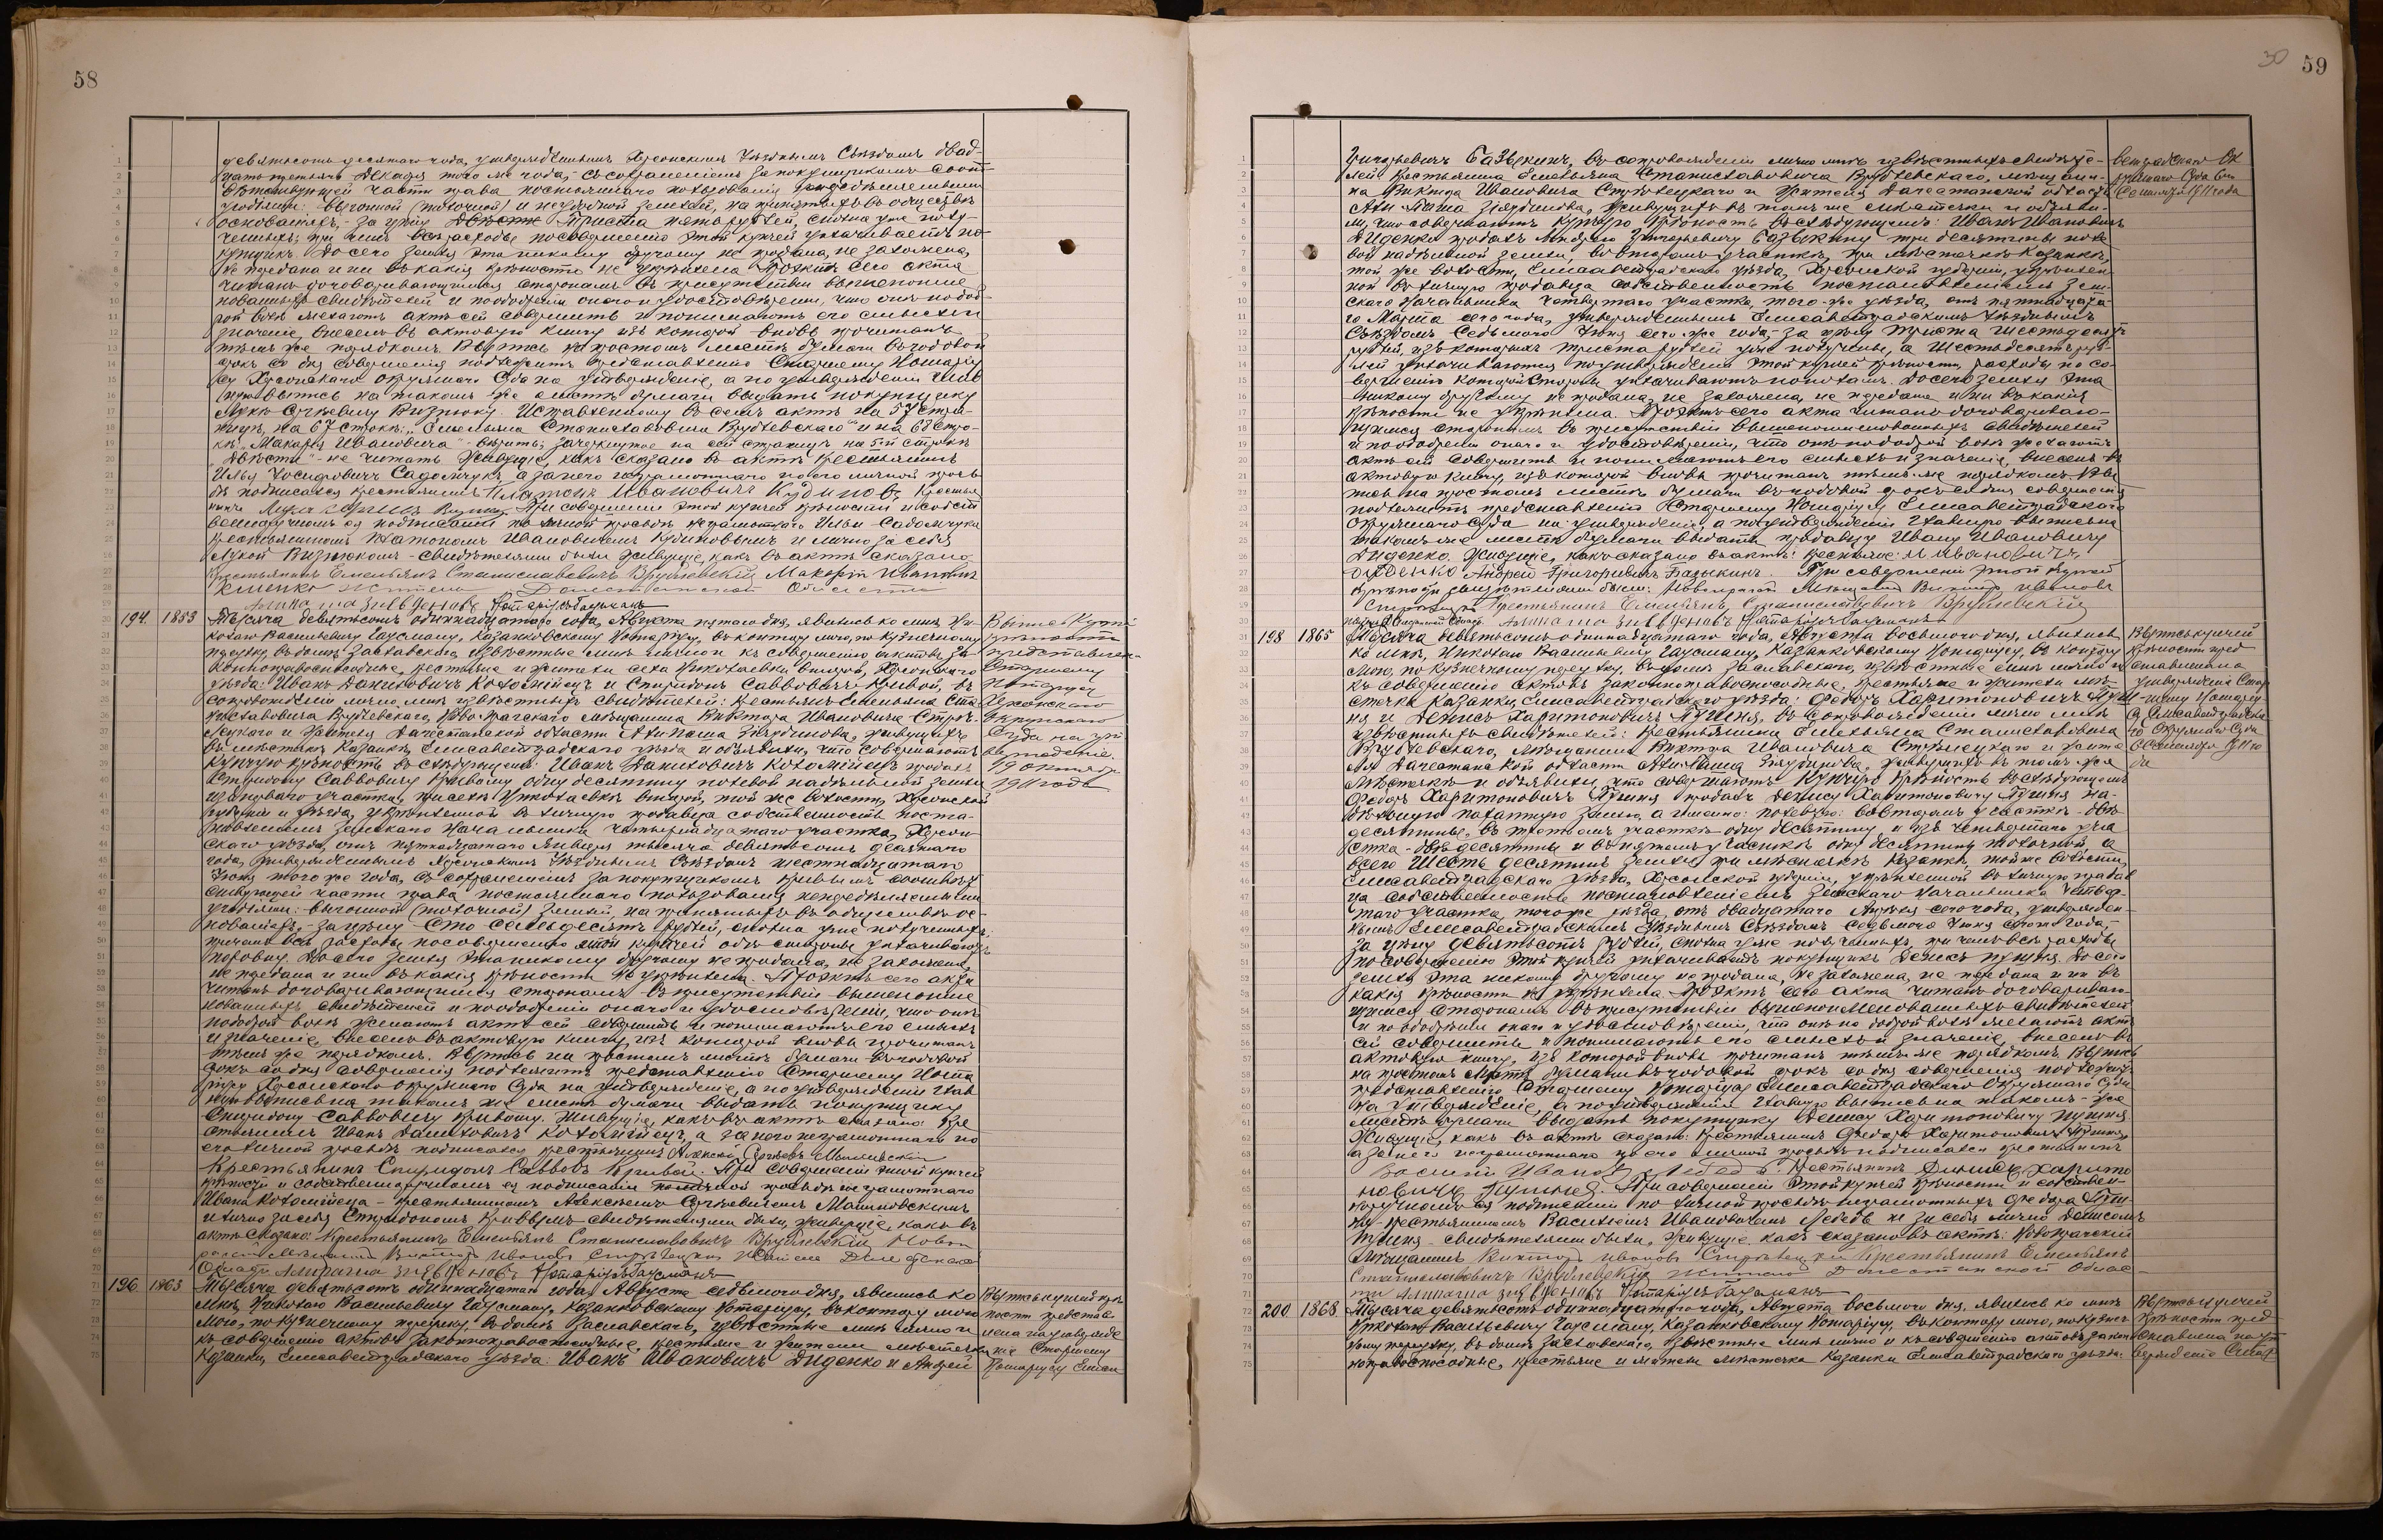 58
девятьсотъ десятаго года, утвержденнымъ Херсонскимъ Уѣзднымъ Съѣздомъ двад-
цать третьяго Декабря того же года, съ сохраненіемъ за покупщикомъ соот-
вѣтствующей части права постояннаго пользованія нераздѣляемыми
угодіями: выгонной (толочной) и неудобной землей, на принятыхъ въ обществѣ
основаніяхъ, за цѣну двѣсти триста пять рублей, сполна уже полу-
ченныхъ; при чемъ всѣ расходы по совершенію этой купчей уплачиваетъ по-
купщикъ. До сего земля эта никому другому не продана, не заложена,
не передана и ни въ какія крѣпости не укрѣплена. Проэктъ сего акта
читанъ договаривающимся сторонамъ въ присутствіи вышепоиме-
нованныхъ свидѣтелей и по одобреніи онаго и удостовѣреніи, что они по доб-
рой волѣ желаютъ актъ сей совершить и понимаютъ его смыслъ и
значеніе, внесенъ въ актовую книгу изъ которой вновь прочитанъ
тѣмъ же порядкомъ. Выпись на простомъ листѣ бумаги въ годовой
срокъ со дня совершенія подлежитъ представленію Старшему Нотаріу-
су Херсонскаго Окружнаго Суда на утвержденіе, а по утвержденіи глав-
ную выпись на такомъ же листѣ бумаги выдать покупщику
Лукѣ Сергѣеву Визнюку. Вставленному въ семъ актѣ на 57 стра-
ницѣ, на 67 строкѣ: „Емельяна Станиславовича Врублевскаго" и на 68 стро-
кѣ: „Макарія Ивановича" - вѣрить; зачеркнутое на сей страницѣ на 5й строкѣ
„двѣсти" - не читать. Живущіе, какъ сказано въ актѣ: Крестьянинъ
Илья Іосифовичъ Садомчукъ, а за него неграмотнаго по его личной прось-
бѣ подписался крестьянинъ Платонъ Ивановичъ Кудиновъ, Крестья-
нинъ Лука. При совершеніи этой купчей крѣпости и собст-
венноручномъ ея подписаніи по личной просьбѣ неграмотнаго Ильи Садомчука
крестьяниномъ Платономъ Ивановичемъ Кудиновымъ и лично за себя
Лукой Визнюкомъ - свидѣтелями были живущіе, какъ въ актѣ сказано:
Крестьянинъ Емельянъ Станиславовичъ Врублевскій, Макарій Ивановичъ
Житель Дагестанской Области
Алипаша Нотаріусъ Гаусманъ
194. 1853 Тысяча девятьсотъ одиннадцатаго года, Августа пятаго дня, явились ко мнѣ, Ни-
колаю Васильевичу Гаусману, Казанковскому Нотаріусу, въ контору мою, по Кузнечному
переулку, въ домѣ Заславскаго, извѣстные мнѣ лично и къ совершенію актовъ за-
коноправоспособные, крестьяне и жители села Николаевки второй, Херсонскаго
уѣзда: Иванъ Даниловичъ Коломіецъ и Спиридонъ Саввовичъ Кривой, въ
сопровожденіи лично мнѣ извѣстныхъ свидѣтелей: крестьянъ Емельяна Ста-
ниславовича Врублевскаго, Новопражскаго мѣщанина Виктора Ивановича Стрѣ-
лецкаго и жителя Дагестанской области Алипаша Зіяудинова, живущихъ
въ мѣстечкѣ Казанкѣ, Елисаветградскаго уѣзда и объявили, что совершаютъ
купчую крѣпость въ слѣдующемъ: Иванъ Даниловичъ Коломіецъ продалъ
Спиридону Саввовичу Кривому одну десятину полевой надѣльной земли
перваго участка, при селѣ Николаевкѣ второй, той же волости, Херсонской
губерніи и уѣзда, укрѣпленной въ личную продавца собственность поста-
новленіемъ Земскаго Начальника четырнадцатаго участка, Херсон-
скаго уѣзда, отъ пятнадцатаго Января тысяча девятьсотъ десятаго
года, утвержденнымъ Херсонскимъ Уѣзднымъ Съѣздомъ шестнадцатаго
Іюня того же года, съ сохраненіемъ за покупщикомъ Кривымъ соотвѣт-
ствующей части права постояннаго пользованія нераздѣляемыми
угодіями: выгонной (толочной) землей, на принятыхъ въ обществѣ ос-
нованіяхъ, за цѣну сто семьдесятъ рублей, сполна уже полученныхъ;
причемъ всѣ расходы по совершенію этой купчей обѣ стороны уплачиваютъ
поровну. До сего земля эта никому другому не продана, не заложена,
не передана и ни въ какія крѣпости не укрѣплена. Проэктъ сего акта
читанъ договаривающимся сторонамъ въ присутствіи вышепоиме-
нованныхъ свидѣтелей и по одобреніи онаго и удостовѣреніи, что они
по доброй волѣ желаютъ актъ сей совершить и понимаютъ его смыслъ
и значеніе, внесенъ въ актовую книгу, изъ которой вновь прочитанъ
тѣмъ же порядкомъ. Выпись на простомъ листѣ бумаги въ годовой
срокъ со дня совершенія подлежитъ представленію Старшему Нота-
ріусу Херсонскаго Окружнаго Суда на утвержденіе, а по утвержденіи глав-
ную выпись на такомъ же листѣ бумаги выдать покупщику
Спиридону Саввовичу Кривому. Живущіе, какъ въ актѣ сказано: Кре-
стьянинъ Иванъ Даниловичъ Коломіецъ, а за него неграмотнаго по
его личной просьбѣ подписался крестьянинъ Алексѣй Сергѣевъ
Крестьянинъ Спиридонъ Саввовъ Кривой. При совершеніи этой купчей
крѣпости и собственноручномъ ея подписаніи по личной просьбѣ неграмотнаго
Ивана Коломійца - крестьяниномъ Алексѣемъ Сергѣевичемъ Малиновскимъ
и лично за себя Спиридономъ Кривымъ свидѣтелями были, живущіе, какъ въ
актѣ сказано: Крестьянинъ Емельянъ Станиславовичъ Врублевскій, Новоп-
Мѣщанинъ Викторъ Ивановъ Стрѣлецкій Житель
Области Алипаша Нотаріусъ Гаусманъ
Выпись Купчей
крѣпости
представлен-
Старшему
Нотаріусу
Херсонскаго
Окружнаго
Суда на ут-
вержденіе.
19 октября
1911 года
196. 1863 Тысяча девятьсотъ одиннадцатаго года, Августа седьмого дня, явились ко
мнѣ, Николаю Васильевичу Гаусману, Казанковскому Нотаріусу, въ контору мою
по Кузнечному переулку, въ домѣ Заславскаго, извѣстные мнѣ лично и
къ совершенію актовъ законоправоспособные, крестьяне и жители мѣстечка
Казанки, Елисаветградскаго уѣзда: Иванъ Ивановичъ Диденко и Андрей
Выпись купчей крѣ-
пости представ-
лена на утвержде-
ніе Старшему
Нотаріусу Елиса-
30 59
Григорьевичъ Базыкинъ, въ сопровожденіи лично мнѣ извѣстныхъ свидѣте-
лей: крестьянина Емельяна Станиславовича Врублевскаго, мѣщани-
на Виктора Ивановича Стрѣлецкаго и жителя Дагестанской области
Али-Паша Зіяудинова, живущихъ въ томъ же мѣстечкѣ и объяви-
ли, что совершаютъ купчую крѣпость въ слѣдующемъ: Иванъ Ивановичъ
Диденко продалъ Андрею Григорьевичу Базыкину три десятины поле-
вой надѣльной земли, во второмъ участкѣ, при мѣстечкѣ Казанкѣ,
той же волости, Елисаветградскаго уѣзда, Херсонской губерніи, укрѣплен-
ной въ личную продавца собственность постановленіемъ Зем-
скаго Начальника четвертаго участка, того же уѣзда, отъ пятнадцата-
го Марта сего года, утвержденнымъ Елисаветградскимъ Уѣзднымъ
Съѣздомъ седьмого Іюня сего же года, за цѣну триста шестьдесятъ
рублей, изъ которыхъ триста рублей уже получены, а шестьдесятъ руб-
лей уплачиваются по утвержденіи этой купчей крѣпости, расходы по со-
вершенію которой стороны уплачиваютъ пополамъ. До сего земля эта
никому другому не продана, не заложена, не передана и ни въ какія
крѣпости не укрѣплена. Проэктъ сего акта читанъ договариваю-
щимся сторонамъ въ присутствіи вышепоименованныхъ свидѣтелей
и по одобреніи онаго и удостовѣреніи, что они по доброй волѣ желаютъ
актъ сей совершить и понимаютъ его смыслъ и значеніе, внесенъ въ
актовую книгу, изъ которой вновь прочитанъ тѣмъ же порядкомъ. Вы-
пись на простомъ листѣ бумаги въ годовой срокъ со дня совершенія
подлежитъ представленію Старшему Нотаріусу Елисаветградскаго
Окружнаго Суда на утвержденіе, а по утвержденіи главную выпись на
такомъ же листѣ бумаги выдать продавцу Ивану Ивановичу
Диденко. Живущіе, какъ сказано въ актѣ: Крестьяне: И Ивановичъ
Диденко Андрей Григорьевичъ Базыкинъ. При совершеніи этой купчей
крѣпости свидѣтелями были: Мѣщанинъ Викторъ Ивановъ
Крестьянинъ Емельянъ Станиславовичъ Врублевскій
Алипаша Нотаріусъ Гаусманъ
ветградскаго Ок-
ружнаго Суда
Сентября 1911 года
198 1865 Тысяча девятьсотъ одиннадцатаго года, Августа восьмого дня, явились
ко мнѣ, Николаю Васильевичу Гаусману, Казанковскому Нотаріусу, въ контору
мою, по Кузнечному переулку, въ домѣ Заславскаго, извѣстные мнѣ лично и
къ совершенію актовъ законоправоспособные, крестьяне и жители мѣ-
стечка Казанки, Елисаветградскаго уѣзда: Федоръ Харитоновичъ Пу-
ня и Денисъ Харитоновичъ, въ сопровожденіи лично мнѣ
извѣстныхъ свидѣтелей: крестьянина Емельяна Станиславовича
Врублевскаго, мѣщанина Виктора Ивановича Стрѣлецкаго и жите-
ля Дагестанской области Али-Паша Зіяудинова, живущихъ въ томъ же
мѣстечкѣ и объявили, что совершаютъ купчую крѣпость въ слѣдующемъ:
Федоръ Харитоновичъ продалъ Денису Харитоновичу на-
дѣльную пахатную землю, а именно: полевую: во второмъ участкѣ - двѣ
десятины, въ третьемъ участкѣ одну десятину, и изъ четвертаго уча-
стка - двѣ десятины и въ пятомъ участкѣ одну десятину толочной, а
всего шесть десятинъ земли, при мѣстечкѣ Казанкѣ, той же волости,
Елисаветградскаго уѣзда, Херсонской губерніи, укрѣпленной въ личную продав-
ца собственность постановленіемъ Земскаго Начальника четвер-
таго участка, того же уѣзда, отъ двадцатаго Апрѣля сего года, утвержден-
нымъ Елисаветградскимъ Уѣзднымъ Съѣздомъ седьмого Іюня сего года,
за цѣну девятьсотъ рублей, сполна уже полученныхъ, при чемъ всѣ расходы
по совершенію этой купчей уплачиваетъ покупщикъ Денисъ. До сего
земля эта никому другому не продана, не заложена, не передана и ни въ
какія крѣпости не укрѣплена. Проэктъ сего акта читанъ договариваю-
щимся сторонамъ въ присутствіи вышепоименованныхъ свидѣтелей
и по одобреніи онаго и удостовѣреніи, что они по доброй волѣ желаютъ актъ
сей совершить и понимаютъ его смыслъ и значеніе, внесенъ въ
актовую книгу, изъ которой вновь прочитанъ тѣмъ же порядкомъ. Выпись
на простомъ листѣ бумаги въ годовой срокъ со дня совершенія подлежитъ
представленію Старшему Нотаріусу Елисаветградскаго Окружнаго Суда
на утвержденіе, а по утвержденіи главную выпись на такомъ же
листѣ бумаги выдать покупщику Денису Харитоновичу
Живущіе, какъ въ актѣ сказано: Крестьянинъ Федоръ Харитоновичъ
а за него неграмотнаго по его личной просьбѣ подписался крестьянинъ
Василій Ивановъ Лебедь. Крестьянинъ Денисъ Харито-
новичъ. При совершеніи этой купчей крѣпости и собствен-
норучномъ ея подписаніи по личной просьбѣ неграмотнаго Федора
крестьяниномъ Василіемъ Ивановичемъ Лебедь и за себя лично Денисомъ
свидѣтелями были, живущіе, какъ сказано въ актѣ: Новопражскій
мѣщанинъ Викторъ Ивановъ Стрѣлецкій Крестьянинъ Емельянъ
Станиславовичъ Врублевскій Житель Дагестанской Облас-
ти Алипаша Нотаріусъ Гаусманъ
Выпись купчей
крѣпости пред-
ставлена на
утвержденіе Стар-
шему Нотаріу-
су Елисаветградска-
го Окружнаго Суда
Сентября 1911 го-
да
200 1868 Тысяча девятьсотъ одиннадцатаго года, Августа восьмого дня, явились ко мнѣ
Николаю Васильевичу Гаусману, Казанковскому Нотаріусу, въ контору мою, по Кузнеч-
ному переулку, въ домѣ Заславскаго, извѣстные мнѣ лично и къ совершенію актовъ закон-
ноправоспособные, крестьяне и жители мѣстечка Казанки Елисаветградскаго уѣзда:
Выпись купчей
крѣпости пред-
ставлена на ут-
вержденіе Стар-